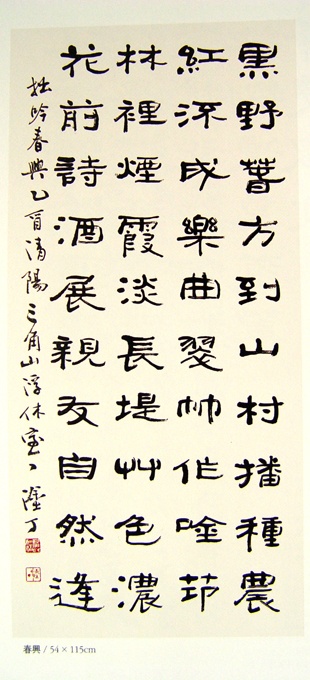 黑野萅方到山村播種農
紅流成樂曲翠竹作唫筇
林裡煙霞淡長堤艸色濃
花前詩酒展親友自然逢
拙吟春興乙酉清陽三角山浮休室
春興 / 54 × 115cm